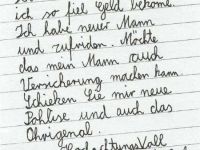 ich so fiel Geld bekome.
Ich habe neuer Mann
und zufriden. Möchte
das mein Mann auch
Versicherung machen kann.
Schieken Sie mir neue
Pohlise und auch das
Ohrigenal.
Hochachtungsvall